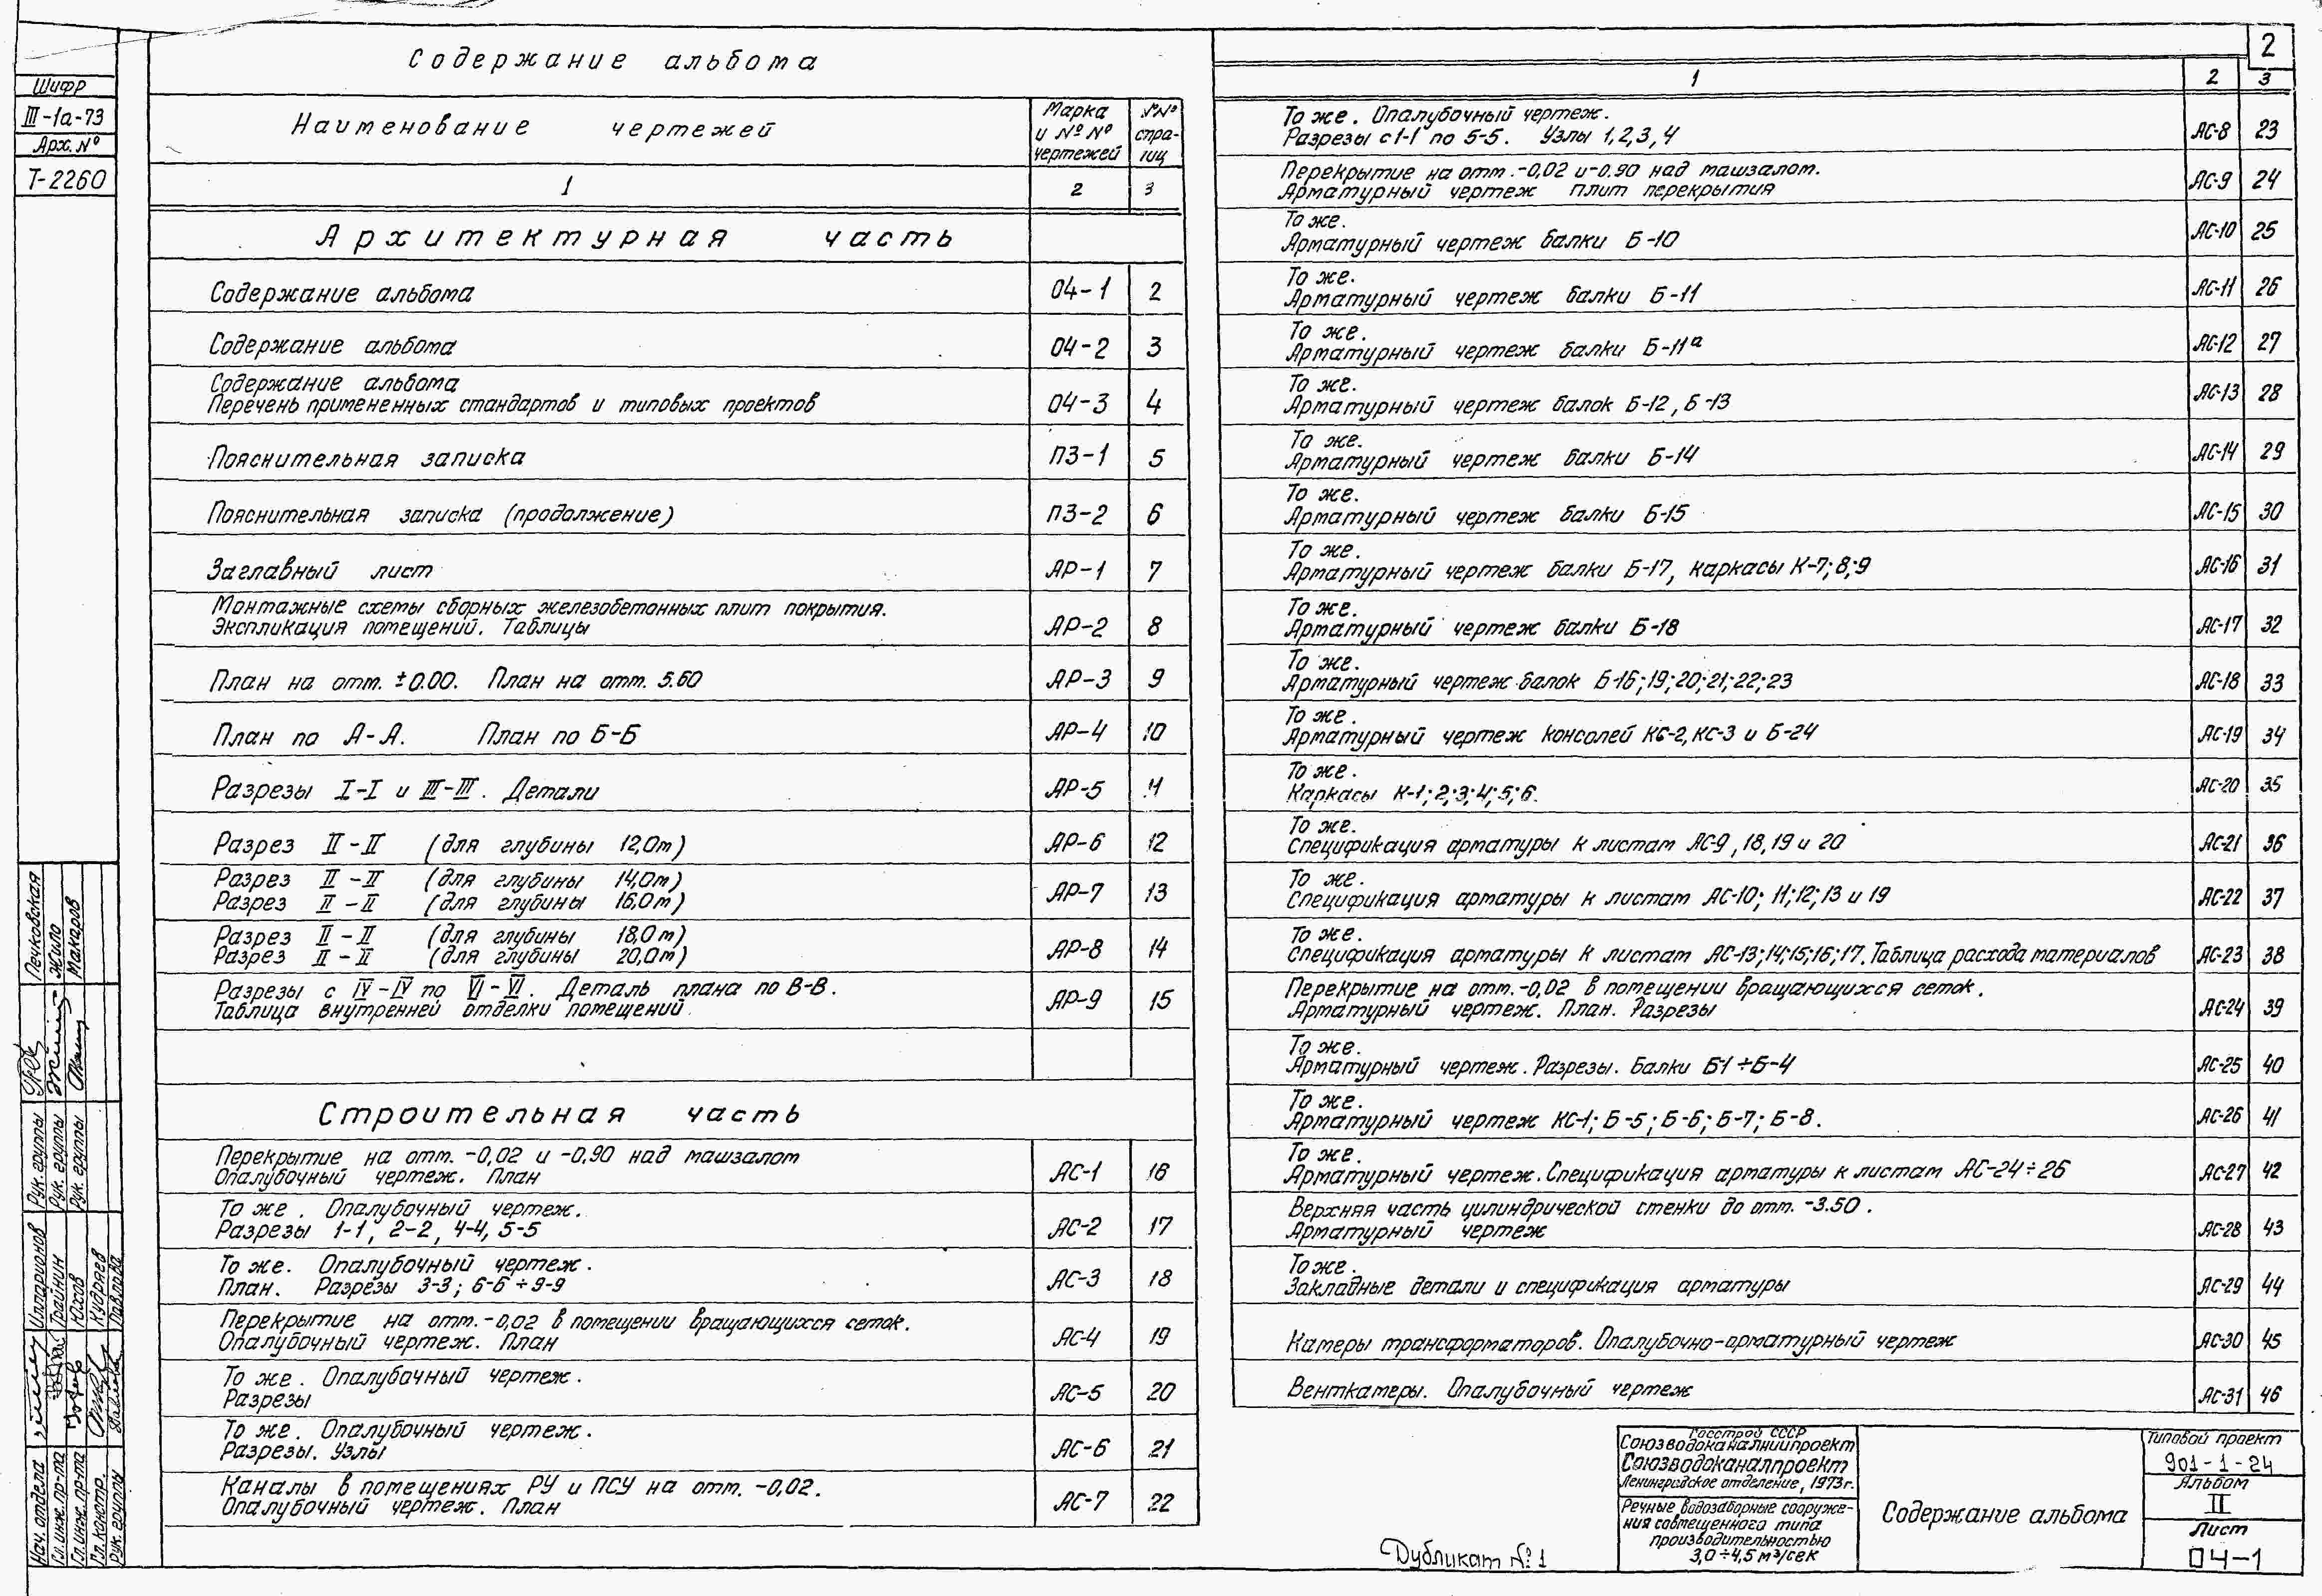 Содержание альбома
Наименование чертежей
Марка и №№ чертежей
№№ страниц
1 2 3
Архитектурная часть
Содержание альбома ОЧ-1 2
Содержание альбома ОЧ-2 3
Содержание альбома
Перечень примененных стандартов и типовых проектов ОЧ-3 4
Пояснительная записка ПЗ-1 5
Пояснительная записка (продолжение) ПЗ-2 6
Заглавный лист АР-1 7
Монтажные схемы сборных железобетонных плит покрытия.
Экспликация помещений. Таблицы АР-2 8
План на отм. ±0.00. План на отм. 5.60 АР-3 9
План по А-А. План по Б-Б АР-4 10
Разрезы I-I и III-III. Детали АР-5 11
Разрез II-II (для глубины 12,0м) АР-6 12
Разрез II-II (для глубины 14,0м)
Разрез II-II (для глубины 16,0м) АР-7 13
Разрез II-II (для глубины 18,0м)
Разрез II-II (для глубины 20,0м) АР-8 14
Разрезы с IV-IV по VI-VI. Деталь плана по В-В.
Таблица внутренней отделки помещений АР-9 15
Строительная часть
Перекрытие на отм. -0,02 и -0,90 над машзалом
Опалубочный чертеж. План АС-1 16
То же. Опалубочный чертеж.
Разрезы 1-1, 2-2, 4-4, 5-5 АС-2 17
То же. Опалубочный чертеж.
План. Разрезы 3-3; 6-6÷9-9 АС-3 18
Перекрытие на отм. -0,02 в помещении вращающихся сеток.
Опалубочный чертеж. План АС-4 19
То же. Опалубочный чертеж.
Разрезы АС-5 20
То же. Опалубочный чертеж.
Разрезы. Узлы АС-6 21
Каналы в помещениях РУ и ПСУ на отм. -0,02.
Опалубочный чертеж. План АС-7 22
2
1 2 3
То же. Опалубочный чертеж.
Разрезы с 1-1 по 5-5. Узлы 1,2,3,4 АС-8 23
Перекрытие на отм. -0,02 и -0.90 над машзалом.
Арматурный чертеж плит перекрытия АС-9 24
То же.
Арматурный чертеж балки Б-10 АС-10 25
То же.
Арматурный чертеж балки Б-11 АС-11 26
То же.
Арматурный чертеж балки Б-11а АС-12 27
То же.
Арматурный чертеж балок Б-12, Б-13 АС-13 28
То же.
Арматурный чертеж балки Б-14 АС-14 29
То же.
Арматурный чертеж балки Б-15 АС-15 30
То же.
Арматурный чертеж балки Б-17, каркасы К-7;8;9 АС-16 31
То же.
Арматурный чертеж балки Б-18 АС-17 32
То же.
Арматурный чертеж балок Б-16;19;20;21;22;23 АС-18 33
То же.
Арматурный чертеж консолей КС-2, КС-3 и Б-24 АС-19 34
То же.
Каркасы К-1;2;3;4;5;6. АС-20 35
То же.
Спецификация арматуры к листам АС-9, 18, 19 и 20 АС-21 36
То же.
Спецификация арматуры к листам АС-10; 11; 12; 13 и 19 АС-22 37
То же.
Спецификация арматуры к листам АС-13;14;15;16;17. Таблица расхода материалов АС-23 38
Перекрытие на отм. -0,02 в помещении вращающихся сеток.
Арматурный чертеж. План. Разрезы АС-24 39
То же.
Арматурный чертеж. Разрезы. Балки Б-1÷Б-4 АС-25 40
То же.
Арматурный чертеж КС-1; Б-5; Б-6; Б-7; Б-8. АС-26 41
То же.
Арматурный чертеж. Спецификация арматуры к листам АС-24÷26 АС-27 42
Верхняя часть цилиндрической стенки до отм. -3.50.
Арматурный чертеж АС-28 43
То же.
Закладные детали и спецификация арматуры АС-29 44
Камеры трансформаторов. Опалубочно-арматурный чертеж АС-30 45
Венткамеры. Опалубочный чертеж АС-31 46
Госстрой СССР
Союзводоканалниипроект
Союзводоканалпроект
Ленинградское отделение, 1973г.
Речные водозаборные сооруже-
ния совмещенного типа
производительностью
3,0÷4,5 м³/сек
Содержание альбома
Типовой проект
901-1-24
Альбом
II
Лист
ОЧ-1
Дубликат №1
Шифр
III-1а-73
Арх. №
Т-2260
Нач. отдела Илларионов
Гл. инж. пр-та Трайнин
Гл. инж. пр-та Юхов
Гл. констр. Кудряев
Рук. группы Павлова
Рук. группы Печковская
Рук. группы Жило
Рук. группы Макаров